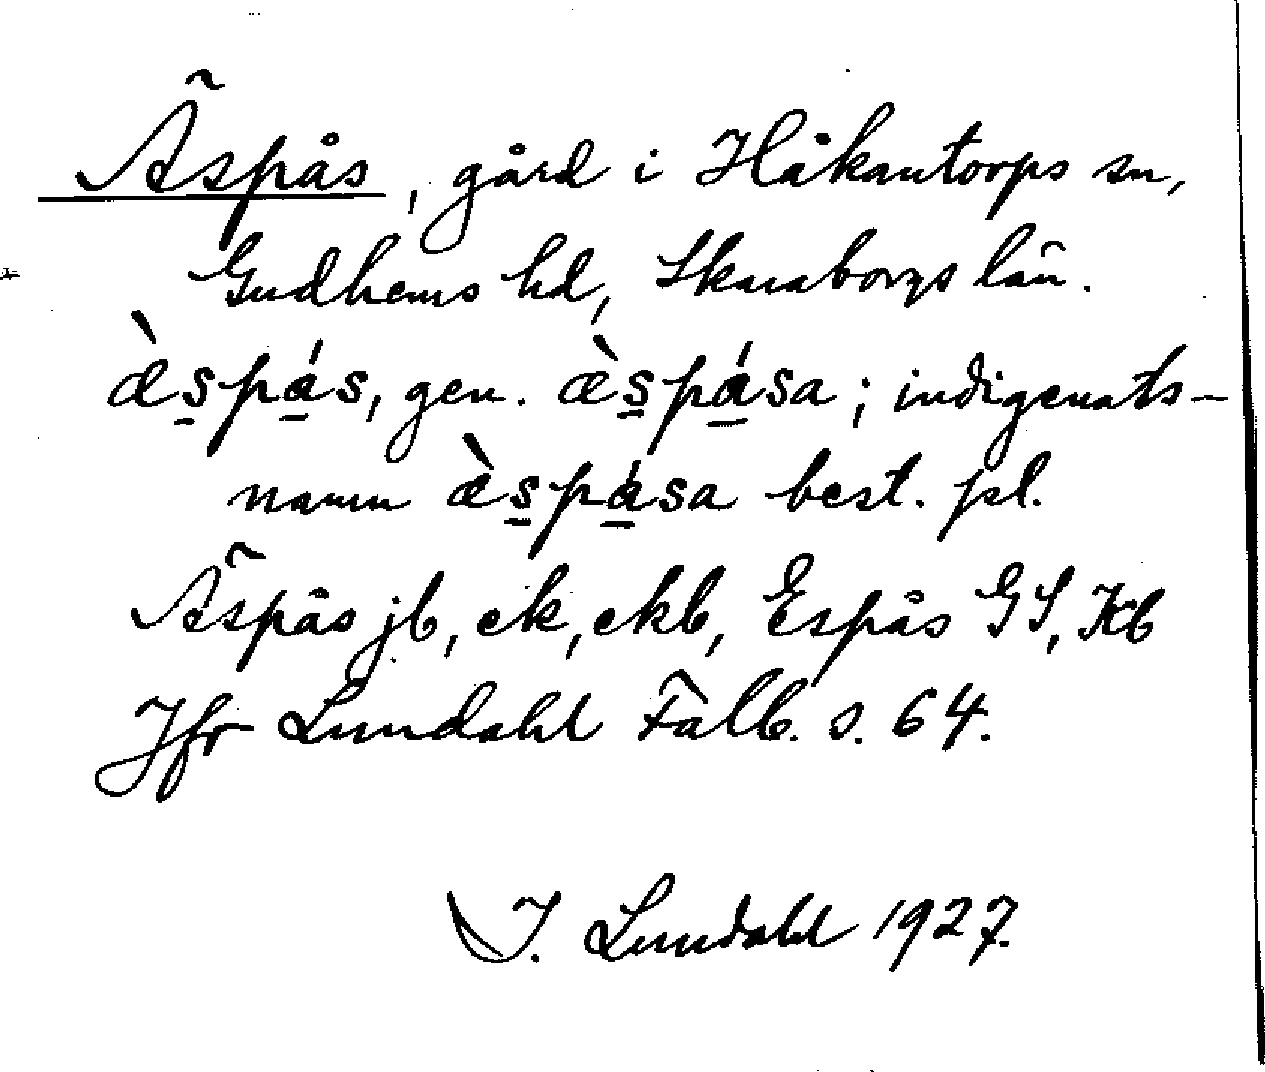 Äspås, gård i Håkantorps sn,
Gudhems hd, Skaraborgs län.
æ̀s̱pá̱s, gen. æ̀s̱pá̱sa; indigenats-
namn æ̀s̱pá̱sa best. pl.
Äspås jb, ek, ekb, Espås GS, Kb
Jfr Lundahl Falb. s. 64.
I. Lundahl 1927.